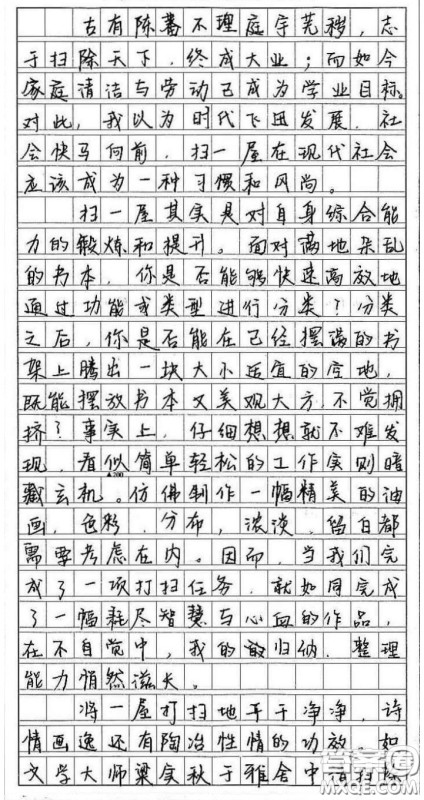 古有陈蕃不理庭宇芜秽，志
于扫除天下，终成大业；而如今
家庭清洁与劳动已成为学业目标。
对此，我以为时代飞迅发展，社
会快马向前，扫一屋在现代社会
应该成为一种习惯和风尚。
扫一屋其实是对自身综合能
力的锻炼和提升。面对满地杂乱
的书本，你是否能够快速高放地
通过功能或类型进行分类？分类
之后，你是否能在已经摆满的书
架上腾出一块大小适宜的空地，
既能摆放书本又美观大方，不觉拥
挤？事实上，仔细想想就不难发
现，看似简单轻松的工作实则暗
藏玄机。仿佛制作一幅精美的油
画，色彩，分布，浓淡，留白都
需要考虑在内。因而，当我们完
成了一项打扫任务，就如同完成
了一幅耗尽智慧与心血的作品，
在不自觉中，我的归纳、整理
能力悄然滋长。
将一屋打扫地干干净净，诗
情画逸还有陶冶性情的功效，如
文学大师梁实秋于雅舍中
答案圈
MXQE.COM